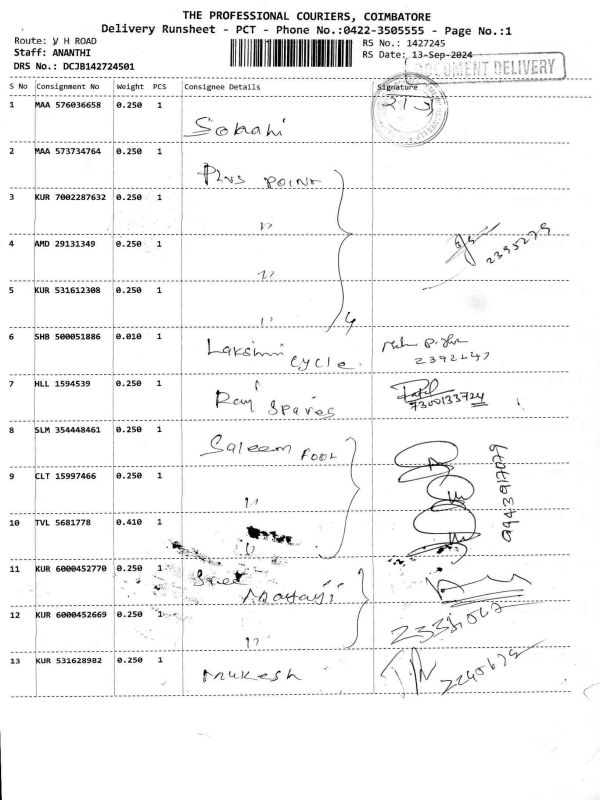 THE PROFESSIONAL COURIERS, COIMBATORE
Delivery Runsheet - PCT - Phone No.:0422-3505555 - Page No.:1
Route: V H ROAD RS No.: 1427245
Staff: ANANTHI RS Date: 13-Sep-2024
DRS No.: DCJB142724501 DOCUMENT DELIVERY
S No Consignment No Weight PCS Consignee Details Signature
1 MAA 576036658 0.250 1
2 MAA 573734764 0.250 1 Plus POINT
3 KUR 7002287632 0.250 1 ''
4 AMD 29131349 0.250 1 '' 2395279
5 KUR 531612308 0.250 1 '' 4
6 SHB 500051886 0.010 1 Lakshmi cycle
7 HLL 1594539 0.250 1 Raj Spares 7300133724
8 SLM 354448461 0.250 1 Saleem FOOL
9 CLT 15997466 0.250 1 '' 9943917079
10 TVL 5681778 0.410 1 ''
11 KUR 6000452770 0.250 1 Sree Mataji
12 KUR 6000452669 0.250 1 ''
13 KUR 531628982 0.250 1 Mukesh